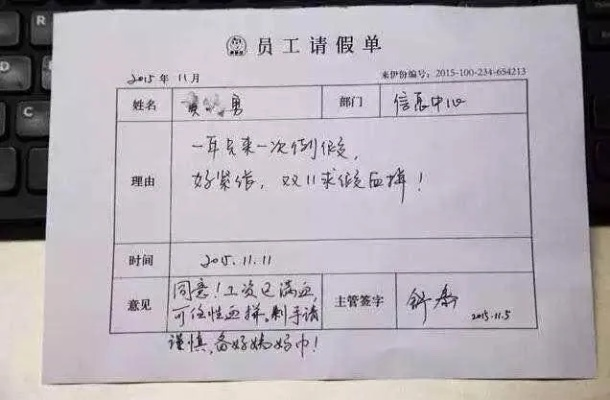 员工请假单
2015年11月
来伊份编号：2015-100-234-654213
姓名 勇 部门 信息中心
一年只来一次例假，
理由
好紧张，双11求假血拼！
时间 2015.11.11
同意！工资已满血，
意见 可任性血拼，剁手请 主管签字
2015.11.5
谨慎，备好姨妈巾！